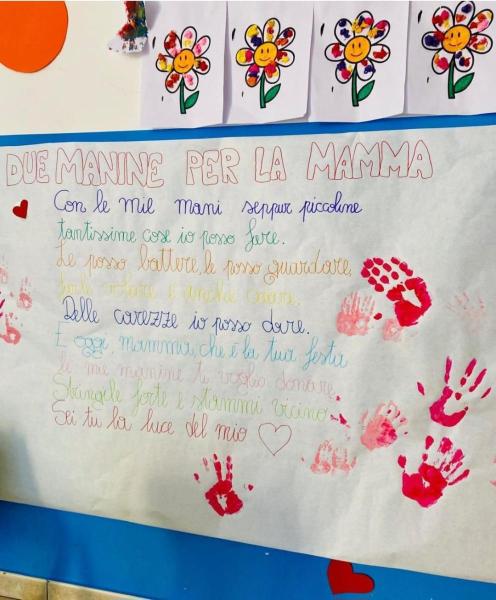 DUE MANINE PER LA MAMMA
Con le mie mani seppur piccoline
tantissime cose io posso fare.
Le posso battere, le posso guardare,
farle volare e anche calare.
Delle carezze io posso dare.
E oggi, mamma, che è la tua festa
le mie manine ti voglio donare.
Stringile forte e stammi vicino
Sei tu la luce del mio